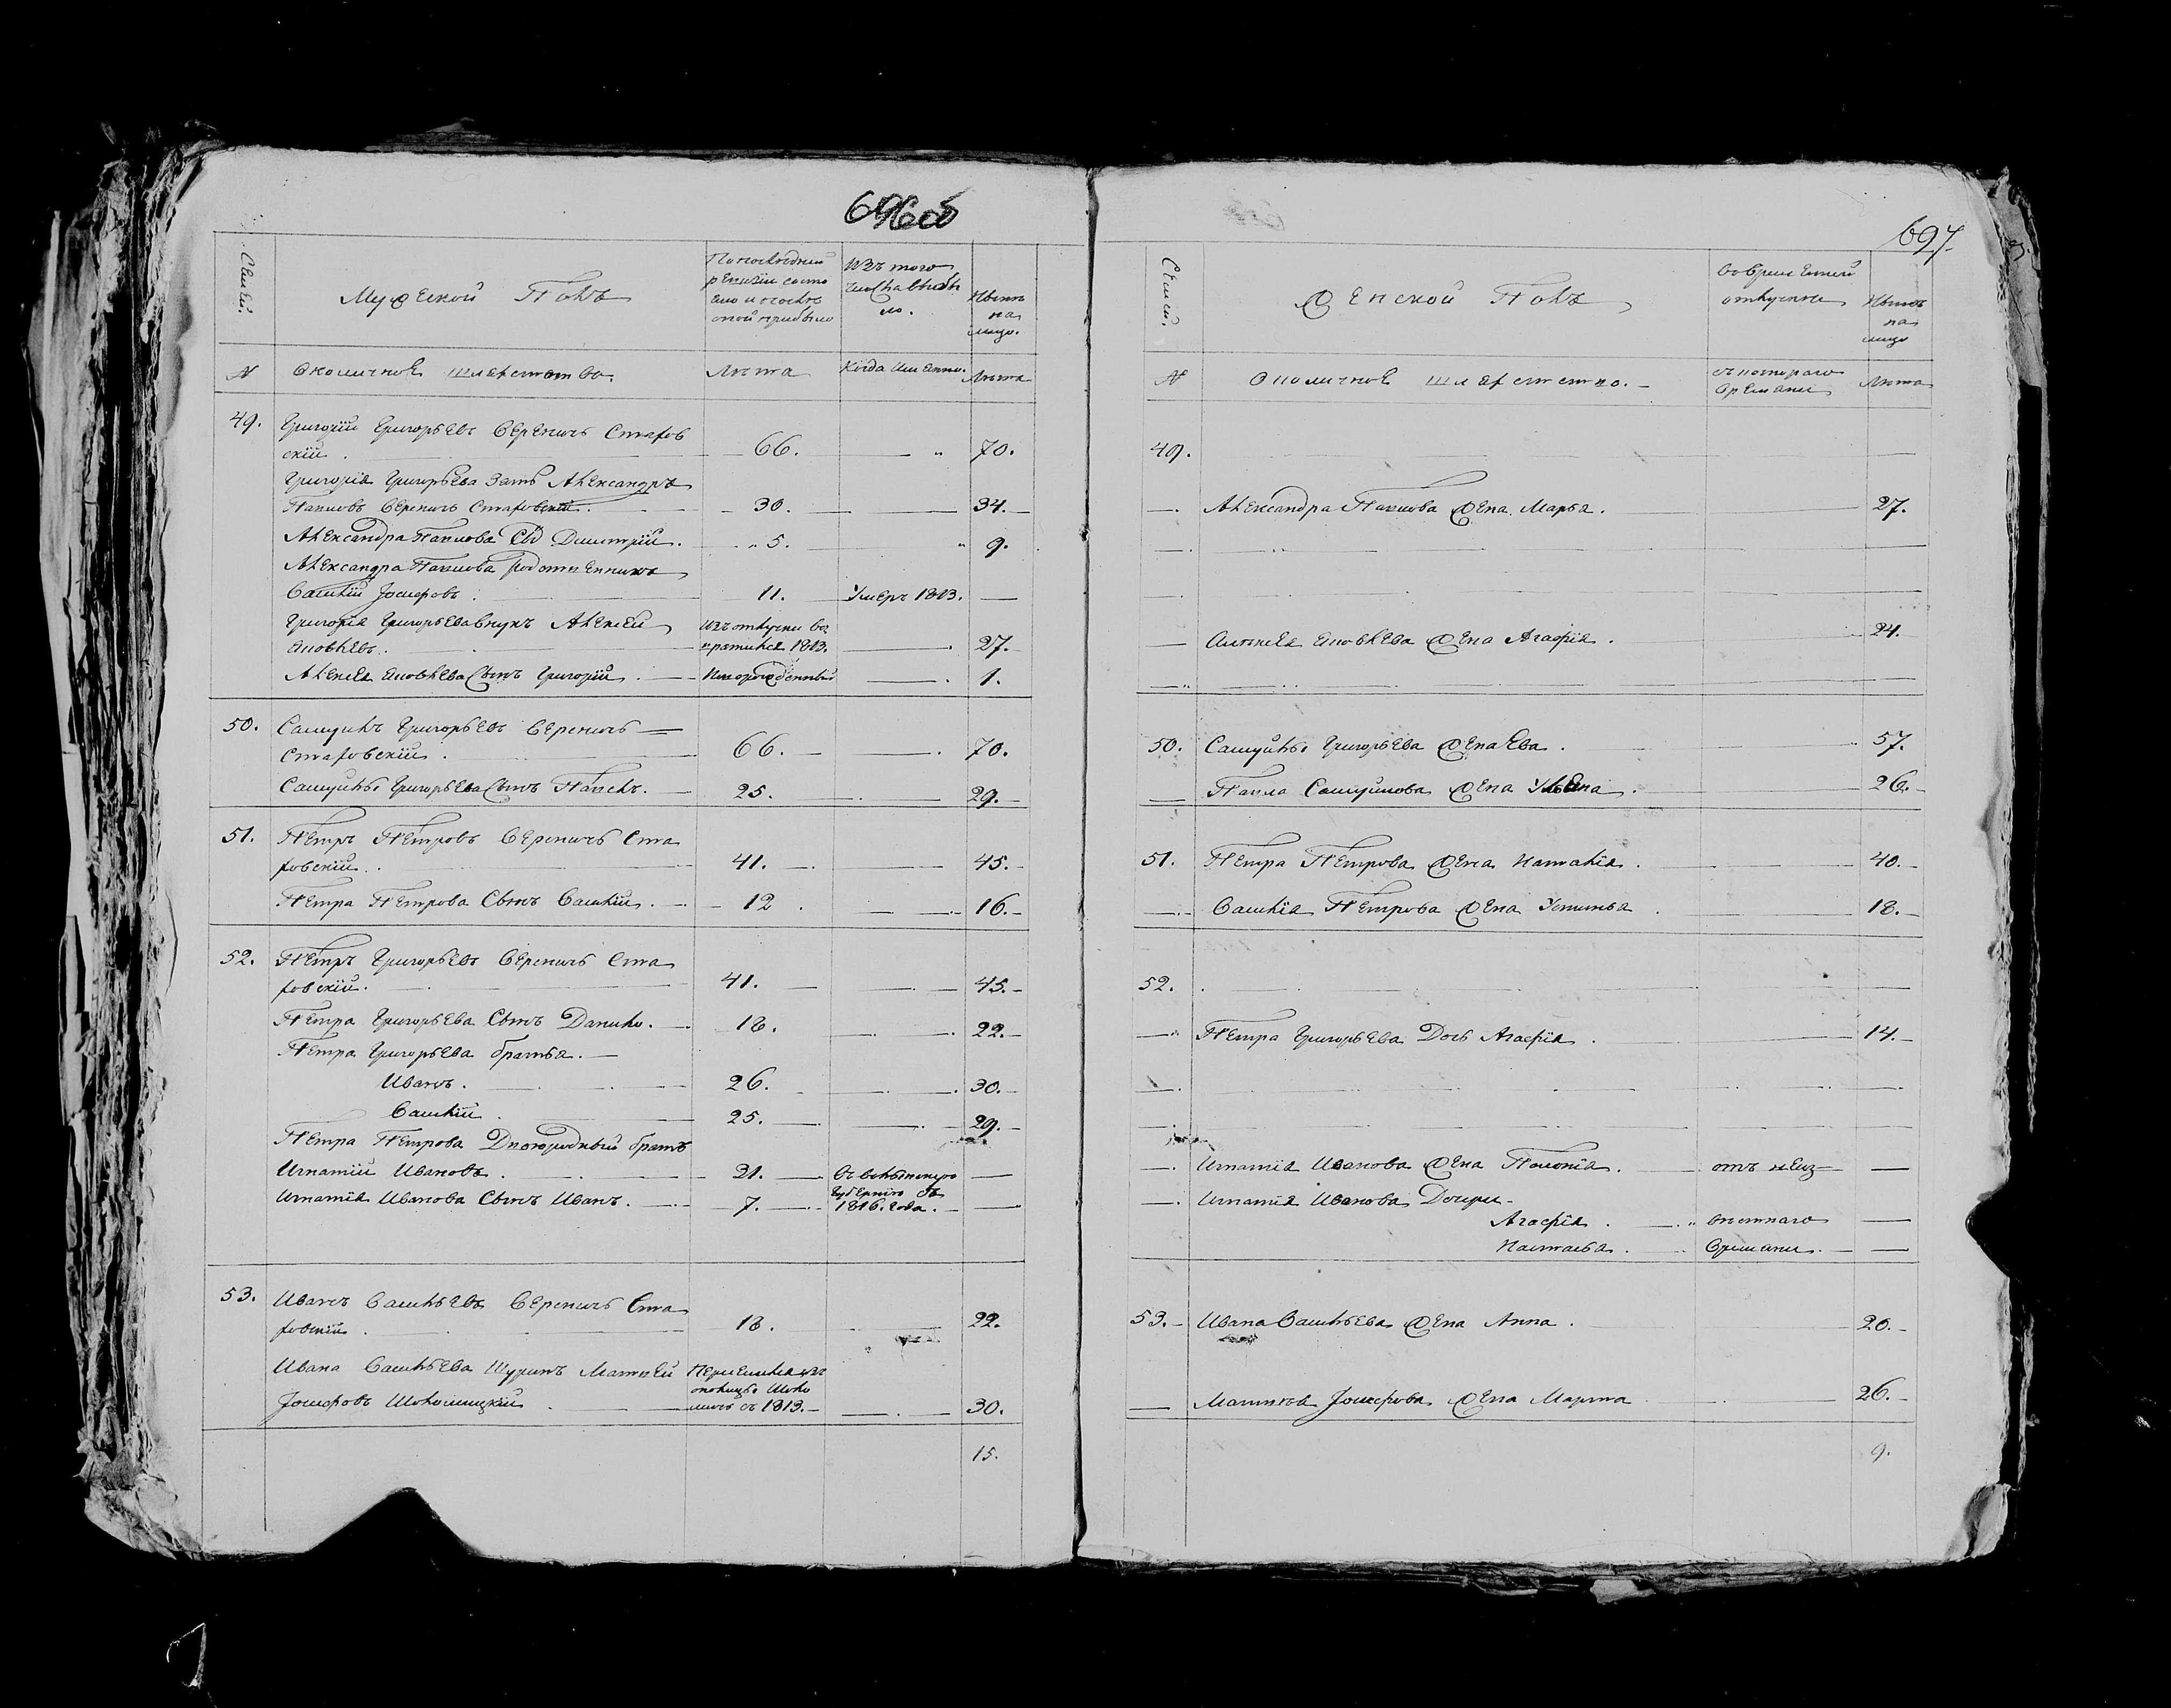 696об
Семей.
Мужеской Полъ
По последней
ревизiи состо
яло и после
оной прибыло
Изъ того
числа выбы
ло.
Ныне
на
лицо.
№
Околичное шляхетство.
Лѣта
Когда именно.
Лѣта
49. Григорiй Григорьевъ Вереничъ Стахов
скiй. 66. 70.
Григорiя Григорьева зять Александръ
Павловъ Вереничъ Стаховскiй. 30. 34.
Александра Павлова Сынъ Дмитрiй. 5. 9.
Александра Павлова родственникъ
Василiй Iосифовъ. 11. Умеръ 1813.
Григорiя Григорьева внукъ Алексей изъ отлучки воз
Яковлевъ. вратился 1813. 27.
Алексея Яковлева Сынъ Григорiй. Новорожденный 1.
50. Самуилъ Григорьевъ Вереничъ
Стаховскiй. 66. 70.
Самуилы Григорьева Сынъ Павелъ. 25. 29.
51. Петръ Петровъ Вереничъ Ста
ховскiй. 41. 45.
Петра Петрова Сынъ Василiй. 12. 16.
52. Петръ Григорьевъ Вереничъ Ста
ховскiй. 41. 45.
Петра Григорьева Сынъ Данило. 18. 22.
Петра Григорьева братья.
Иванъ. 26. 30.
Василiй. 25. 29.
Петра Петрова Двоюродный братъ
Игнатiй Ивановъ. 31. въ Волынскую
Игнатiя Иванова Сынъ Иванъ. 7. губернiю съ
1816. года.
53. Иванъ Васильевъ Вереничъ Ста
ховскiй. 18. 22.
Ивана Васильева Шуринъ Матвей
Iосифовъ Шоломицкiй. съ 1813. 30.
15.
697.
Семей.
Женской Полъ
во временной
отлучке
Ныне
на
лицо
№
Околичное шляхетство.
съ котораго
времени
Лѣта
49.
Александра Павлова жена Марья. 27.
Алексея Яковлева жена Агафiя. 24.
50. Самуилы Григорьева жена Ева. 57.
Павла Самуилова жена Ульяна. 26.
51. Петра Петрова жена Наталiя. 40.
Василiя Петрова жена Устинья. 18.
52.
Петра Григорьева Дочь Агафiя. 14.
Игнатiя Иванова жена Полонiя.
Игнатiя Иванова Дочери
Агафiя.
Настасья. времени.
53. Ивана Васильева жена Анна. 20.
Матвѣя Iосифова жена Марта 26.
9.